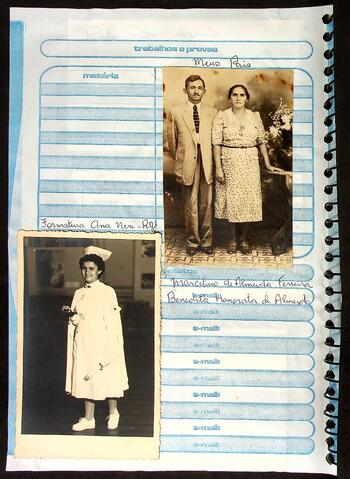 trabalhos e provas
Meus Pais
matéria
Formatura Ana Neri - RJ
contatos
Marcelino de Almeida Ferreira
Benedita Honorata de Almeida
e-mail:
e-mail:
e-mail:
e-mail:
e-mail:
e-mail:
e-mail: